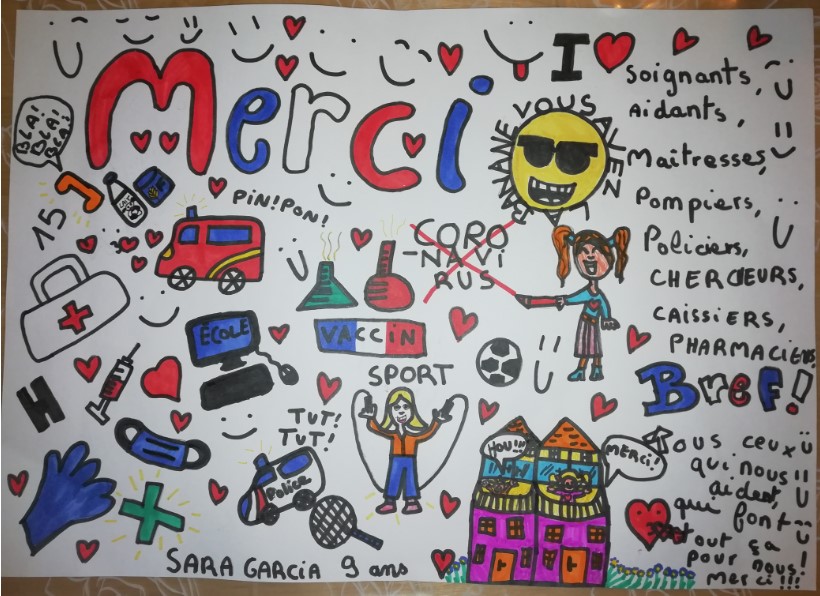 Merci
I
soignants,
Aidants,
Maîtresses,
Pompiers,
Policiers,
CHERCHEURS,
CAISSIERS,
PHARMACIENS,
Bref!
Tous ceux
qui nous
aident,
qui font
tout ça
pour nous!
merci!!!
VOUS
BLA!
BLA!
BLA!
15
PIN! PON!
CORO
-NAVI
RUS
VACCIN
ÉCOLE
SPORT
H
TUT!
TUT!
POLICE
HOU!!!
MERCI!
SARA GARCIA 9 ans